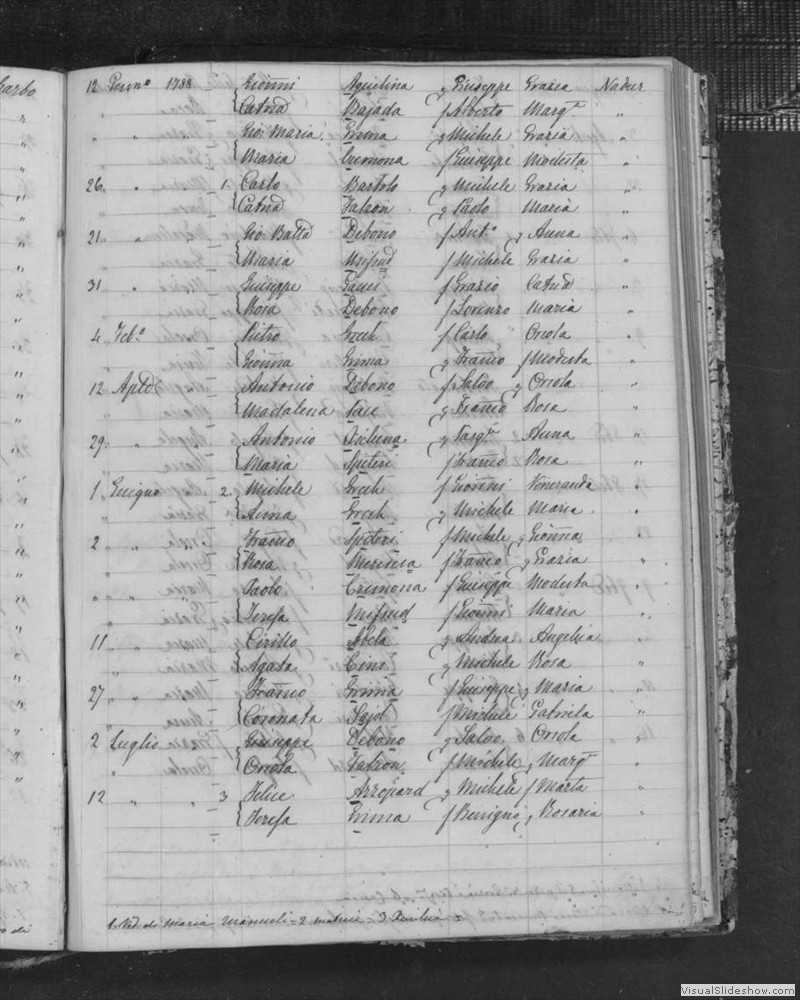 Garbo
12 Genn° 1788 Gioñni Aquilina g Giuseppe Grazia Nadur
Catnā Bajada f Alberto Margta "
" " Gio: Maria Grima g Michele Grazia "
Maria Cremona f Giuseppe Modesta "
26 " 1 Carlo Bartolo g Michele Grazia "
Catnā Falzon g Paolo Maria "
21 " Gio: Battā Debono f Ant° g Anna "
Maria Mifsud f Michele Grazia "
31 " Giuseppe f Grazio Catnā "
Rosa Debono f Lorenzo Maria "
4 Feb° Pietro Grech f Carlo Orsola "
Gioñna Grima g Frañco f Modesta "
12 Antonio Debono f Salvo g Orsola "
Madalena g Frañco Rosa "
29 " Antonio g Anna "
Maria Spiteri f Frañco Rosa "
1 Giugno 2 Michele Grech f Gioñni Veneranda "
Anna Grech g Michele Maria "
2 " Frañco Spiteri f Michele g Gioñna "
Rosa f Frañco g Grazia "
" " Paolo Cremona f Giuseppe Modesta "
Teresa Mifsud f Gioñni Maria "
11 " Cirillo Abela g Andrea Angelica "
Agata Cini g Michele Rosa "
27 " Frañco Grima f Giuseppe g Maria "
Coronata Said f Michele Gabriela "
2 Luglio Giuseppe Debono g Salvo Orsola "
Orsola Falzon f Michele g Margta "
12 " 3 Felice Azzopard g Michele f Marta "
Teresa Grima f Benigno g Rosaria "
1. Ved. di Maria Manueli = 2 = 3
VisualSlideshow.com